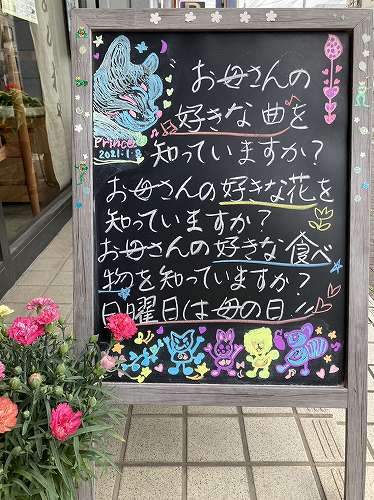 お母さんの
好きな曲を
Prince
2021.1.8
知っていますか?
お母さんの好きな花を
知っていますか?
お母さんの好きな食べ
物を知っていますか?
日曜日は母の日!!